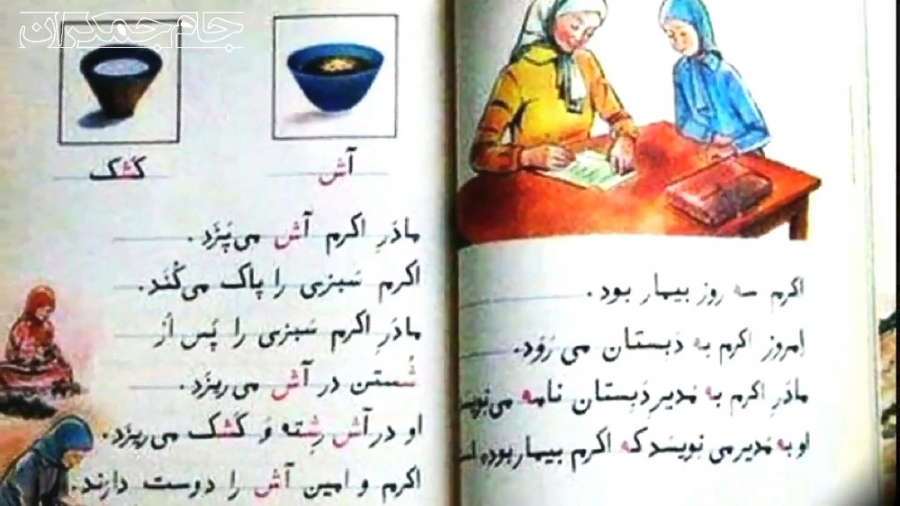 جام جمکران
آش
کَشک
مادَرِ اکرم آش می‌پَزَد.
اکرم سَبزی را پاک می‌کُنَد.
مادَرِ اکرم سَبزی را پَس اَز
شُستن در آش می‌ریزَد.
او در آش رِشته وَ کَشک می‌ریزَد.
اکرم و امین آش را دوست دارَند.
اکرم سه روز بیمار بود.
اِمروز اکرم به دَبستان می‌رَوَد.
مادَرِ اکرم به مُدیرِ دَبِستان نامه
او به مُدیر می‌نِویسَد که اکرم بیمار بوده